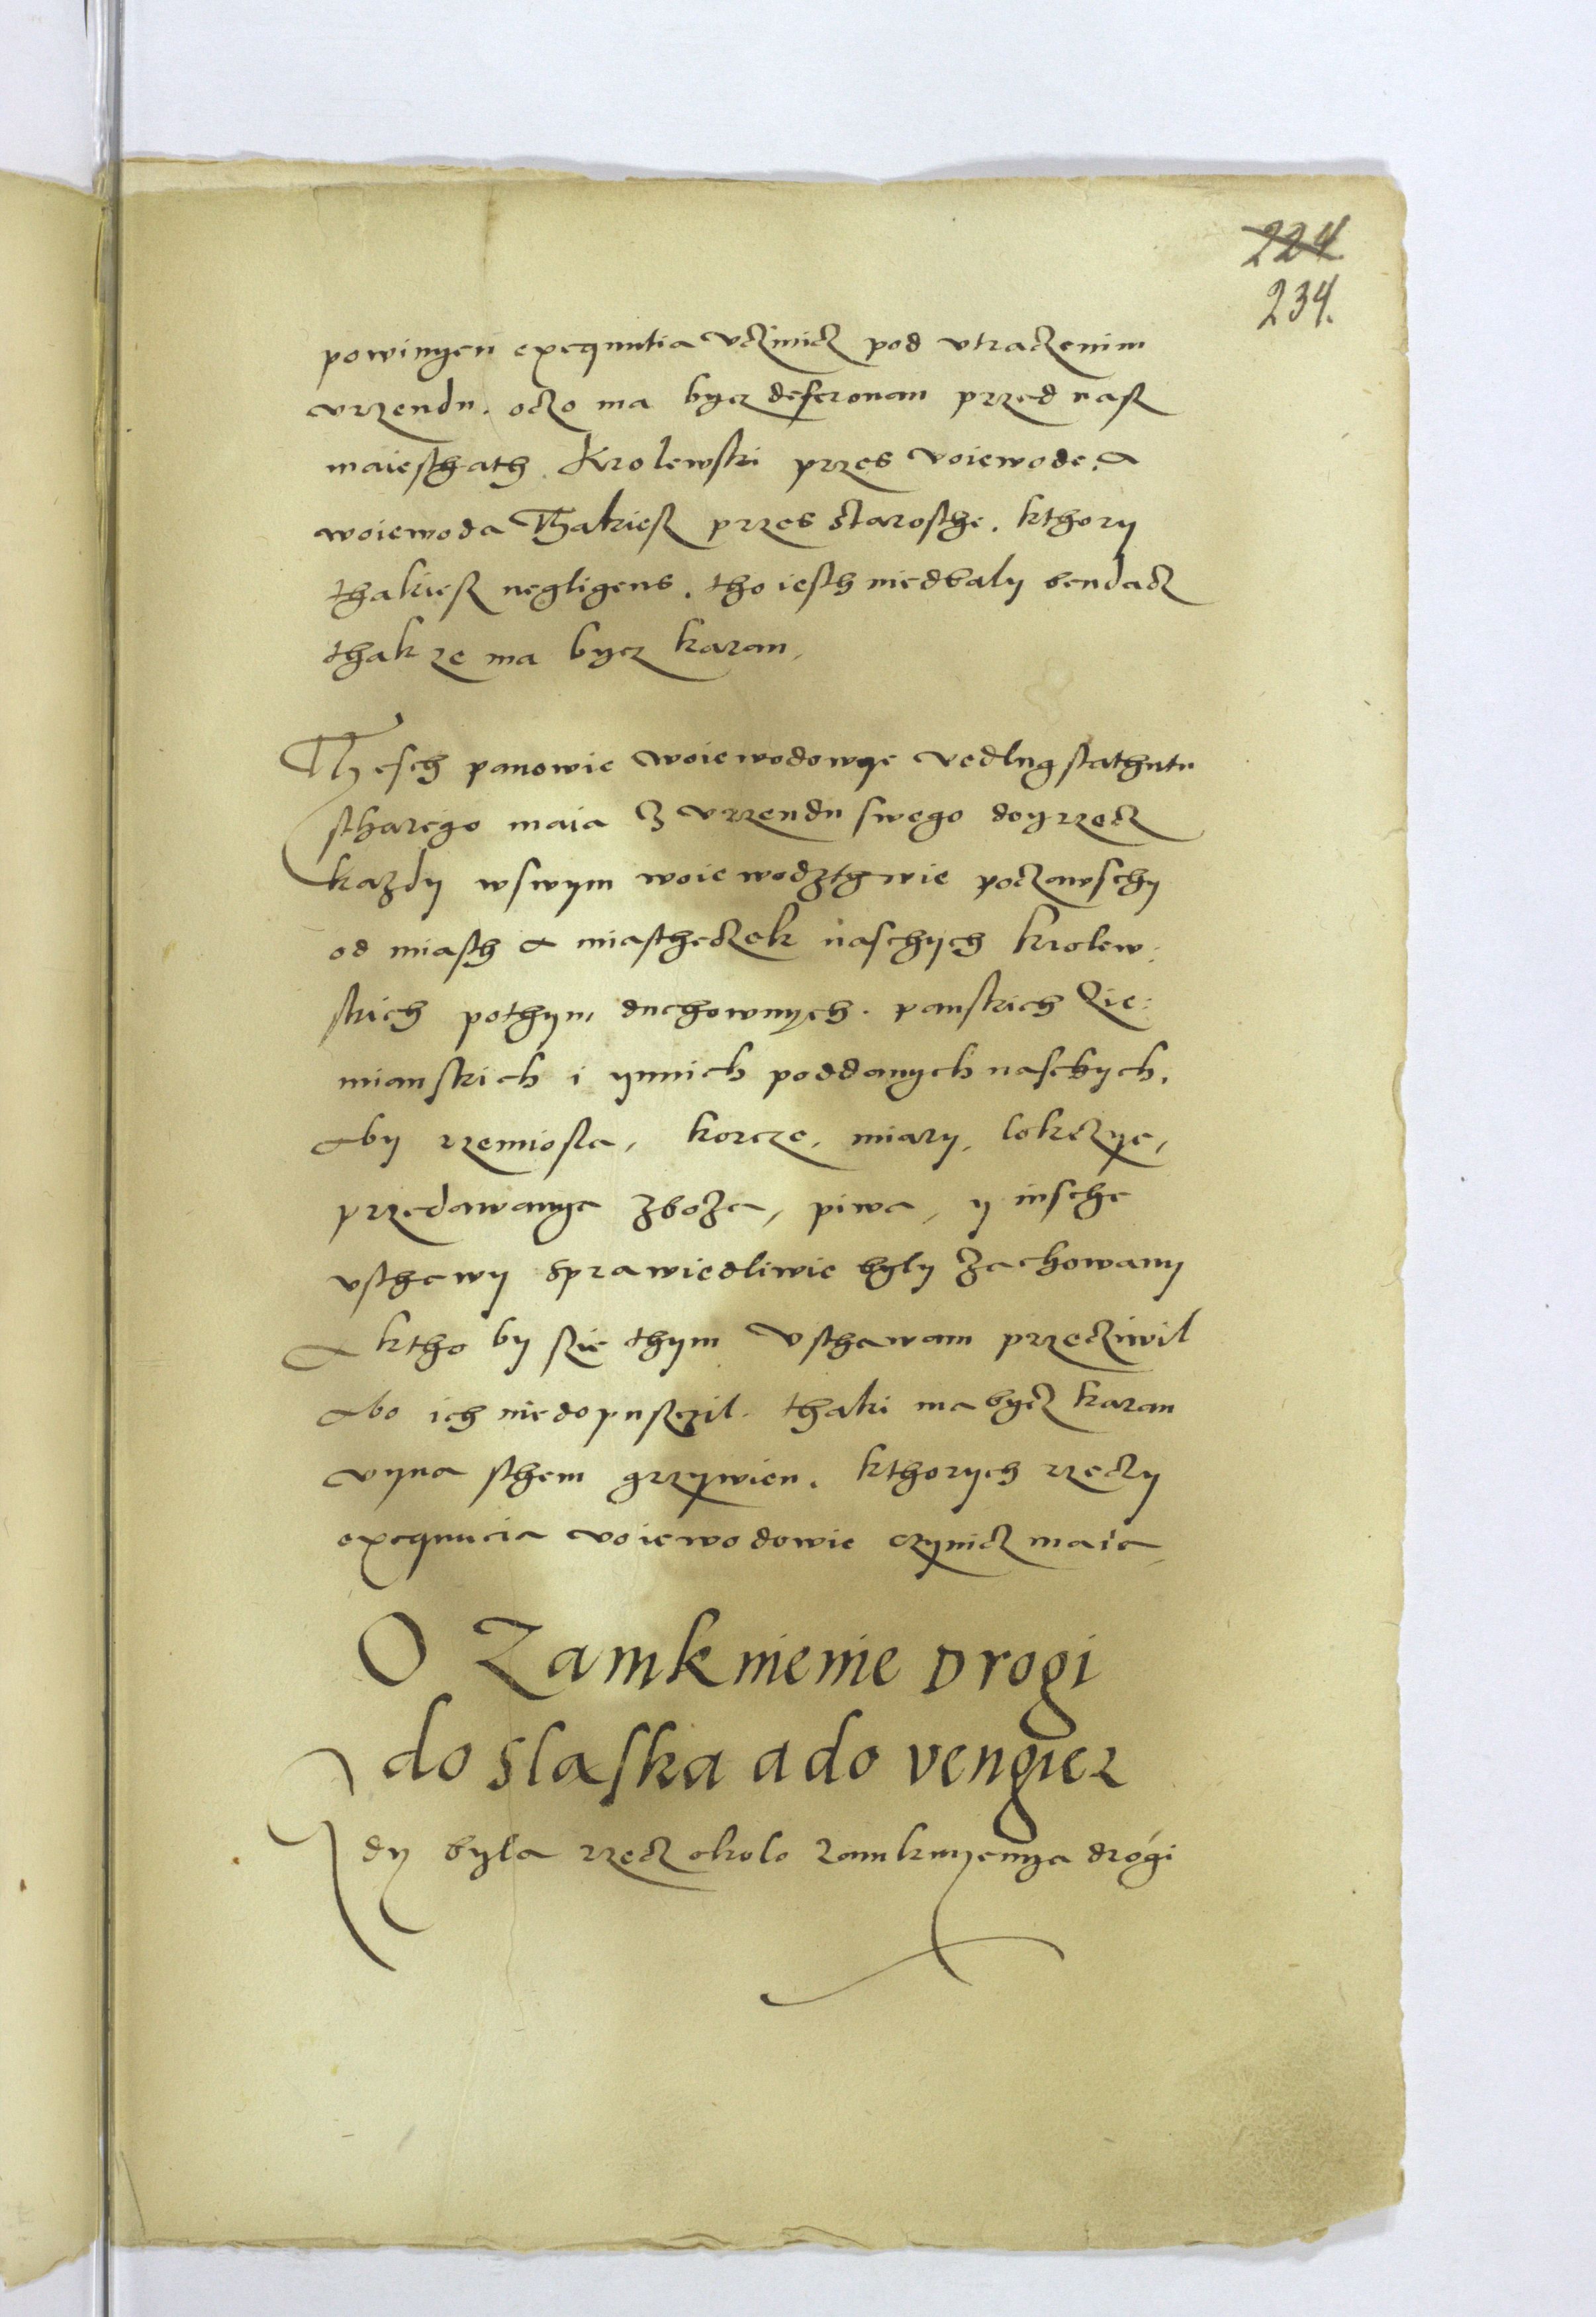 224.
234.
powinyen exequutia uczinicz pod utraczenim
urzendu. oczo ma bycz deferonan przed nasz
maiesthath Krolewski przes voiewode. a
woiewoda Thakiesz przes starosthe. kthory
thakiesz negligens. tho iesth niedbaly bendacz
thak ze ma bycz karan.
Thesch panowie woiewodowye vedlug stathutu
stharego maia z urzendu swego doyrzecz
kazdy wswym woiewodzthwie poczawschy
od miasth a miastheczek naschych krolew:
skich pothym duchownych. panskich Zie:
mianskich i ynnich poddanych naschych.
aby rzemiosla, korcze, miary, lokczye,
przedawanye zboza, piwa, y insche
usthawy sprawiedliwie byly zachowany
a ktho by szie thym usthawam przecziwil
abo ich niedopusczil. thaki ma bycz karan
vyna sthem grzywien. kthorych rzeczy
exequucia voiewodowie czynicz maia
O Zamknienie Drogi
do slaska a do vengier
Gdy byla rzecz okolo zamknyenya drogi